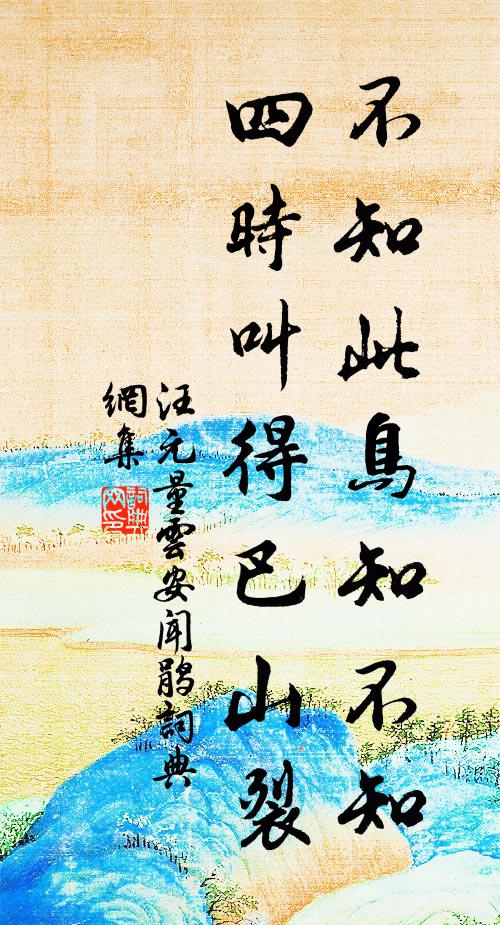 不知此鳥知不知
四時叫得巴山裂
汪元量雲安聞鵑詞典
網集
詞典網印